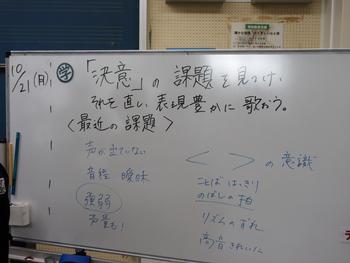 10/21(月)
学
「決意」の課題を見つけ、
それを直し、表現豊かに歌おう。
〈最近の課題〉
声が出ていない
音程 曖昧
強弱
声量も!
< >の意識
ことば はっきり
のばしの拍
リズムのずれ
高音きれいに